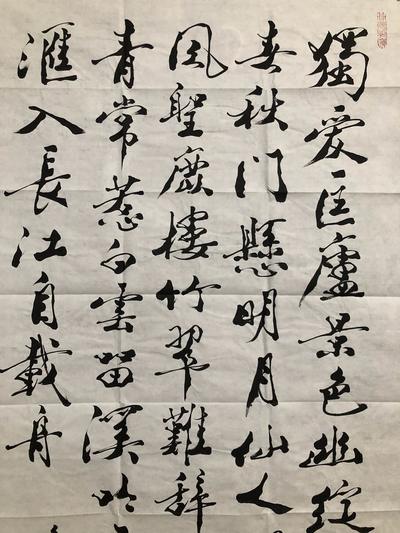 獨愛匡廬景色幽
春秋门懸明月仙人
風聖樓竹翠難辭
青常惹白雲留溪吟
滙入長江自載舟